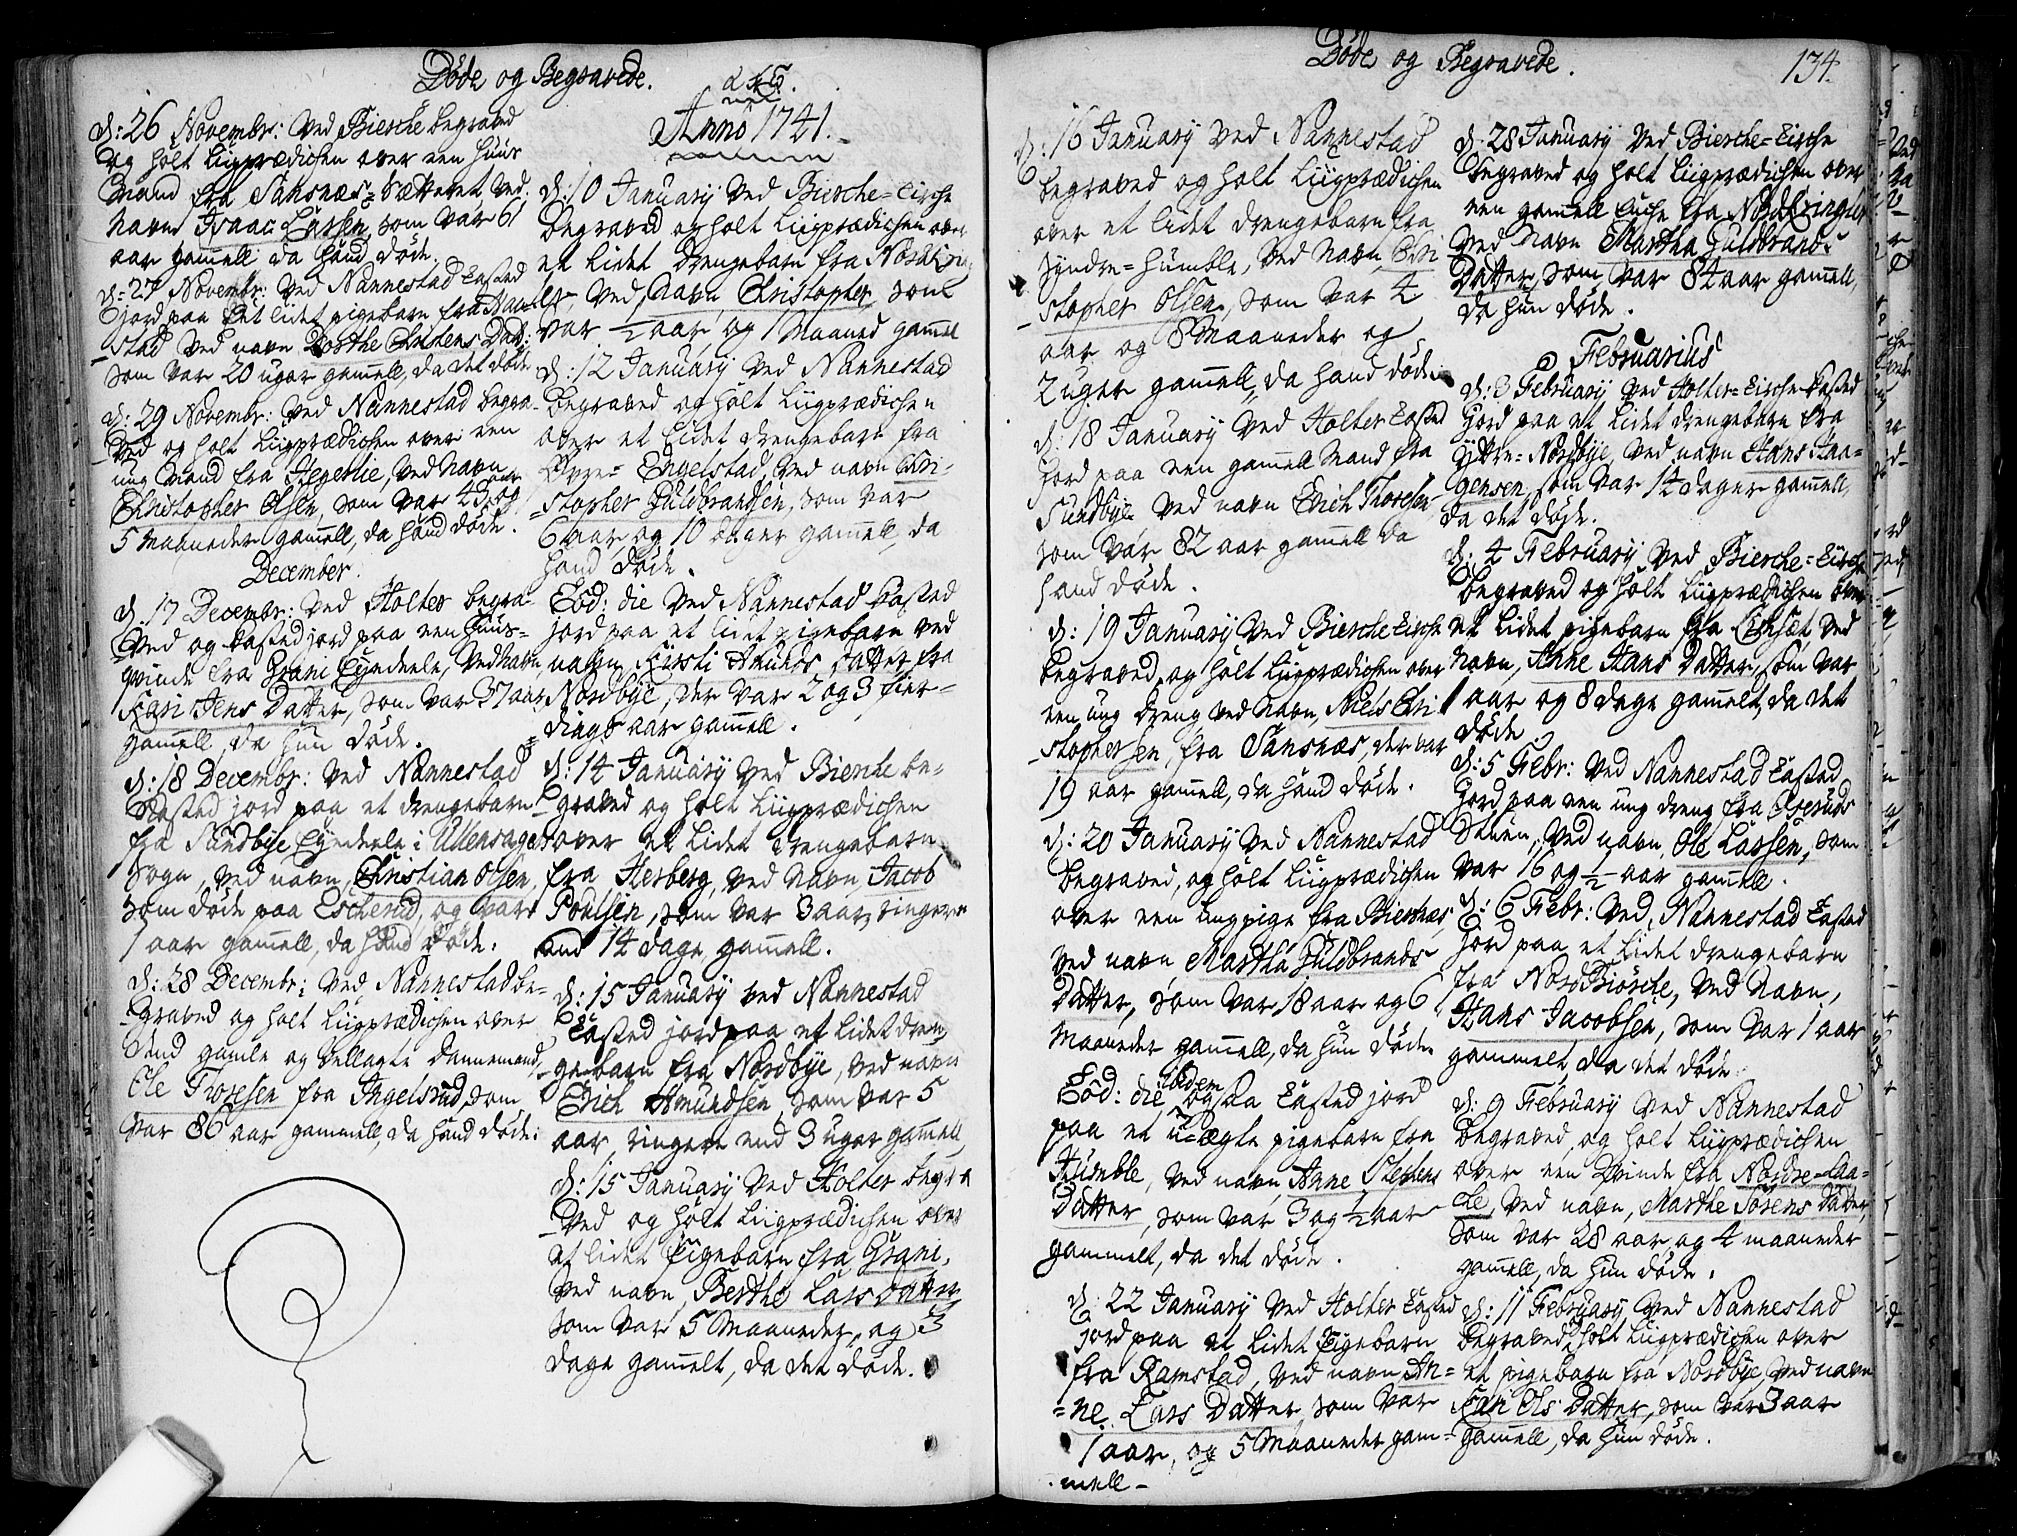 Döde og Begravede.
d: 26 Novembr: ved Biesche begraved
og holt Liigprædichen over een Huus
Mand fra Sansnæs=Sætteret ved
Navn Isaac Larsen, som var 61
aar gamell da hand döde.
d: 27 Novembr: ved Nannestad Casted
jord paa Eet lidet pigebarn fra Nan-
-stad ved navn Dorthe Christens Dat:
som var 20 uger gamell, da det döde
d: 29 Novembr: ved Nannestad begra-
-ved og holt Liigprædichen over een
ung Mand fra Hegerlie, ved Navn
Christopher Olsen, som var 43 aar og
5 Maaneder gamell, da hand döde.
December.
d. 17 Decembr: ved Holter begra-
-ved og Casted jord paa een Huus-
qvinde fra Grani Eyendele, ved Navn,
Kari Jens Datter, som var 37 aar
gamell, da hun döde.
d: 18 Decembr: ved Nannestad
Casted jord paa et drengebarn
fra Sundbye Eyendele i Ullensager
Sogn, ved navn, Christian Olsen,
som döde paa Escherud, og var
1 aar gamell, da hand döde.
d: 28 Decembr: ved Nannestad be-
-graved og holt Liigprædichen over
dend gamle og vellagte Dannemand,
Ole Troresen fra Ingelsrud, som
var 86 aar gammell, da hand döde:
Anno 1741.
d: 10 January ved Biesche=Cirche
Begraved og holt Liigprædichen over
et lidet Drengebarn fra
ved navn Christopher, som
var ½ aar, og 1 Maaned gamel
d: 12 January ved Nannestad
Begraved og holt Liigprædichen
over et lidet drengebarn fra
Övre= Engelstad, ved navn Chri-
-stopher Guldbrandsen, som var
6 aar og 10 uger gamell, da
hand döde.
Eôd: die ved Nannestad Casted
jord paa et lidet pigebarn ved
navn, Kirsti Amunds Datter fra
Nordbye, der var 2 og 3 fier-
=dings aar gamell.
d: 14 January ved Biesche be-
-graved og holt Liigprædichen
over et lidet drengebarn
fra Herberg, ved Navn, Jacob
Poulsen, som var 3 aar, ringere
end 14 dage gamell.
d: 15 January ved Nannestad
Casted jord paa et lidet dren-
-gebarn fra Nordbye, ved navn
Erich Amundsen, som var 5
aar, ringere end 3 uger gamell
d: 15 January ved Holter begra
-ved og holt Liigprædichen over
et lidet Pigebarn fra Grani,
ved navn, Berthe Lars Datter
som var 5 Maaneder, og 3
dage gamelt, da det döde.
Döde og Begravede.
134.
d: 16 January ved Nannestad
begraved og holt Liigprædichen
over et lidet drengebarn fra
Syndre=Humble, ved Navn, Chri
-stopher Olsen, som var 4
aar og 8 Maaneder og
2 uger gamell, da hand döde
d: 18 January ved Holter Casted
jord paa een gamell Mand fra
Sundbye ved navn Erich Thoresen
som var 82 aar gamell da
hand döde.
d: 19 January ved Biesche Circhen
begraved og holt Liigprædichen over
een ung dreng ved Navn, Niels Chri
-stophersen, fra Sansnæs, der var
19 aar gamell, da hand döde.
d: 20 January ved Nannestad
begraved, og holt Liigprædichen
over een ung pige fra Biernæs,
ved navn Martha Guldbrands
Datter, som var 18 aar og 6
Maaneder gamell, da hun döde.
Eôd: die ibidem ogsaa Casted jord
paa et u=ægte pigebarn fra
Humble, ved navn, Anne Stephens
Datter, som var 3 og ½ aar
gammelt, da det döde.
d: 22 January, ved Holter Casted
jord paa et lidet Pigebarn
fra Ramstad, ved navn An=
=ne Lars Datter, som var
1 aar, og 5 Maaneder gam=
mell-
d: 28 January ved Biesche=Cirche
begraved og holt Liigprædichen over
een gamell Enche fra
ved Navn Martha Guldbrands
Datter, som var 84 aar gamell,
da hun döde.
Februarius
d: 3 February ved Holter=Circhen Casted
jord paa et lidet drengebarn fra
Yttre=Nordbye, ved navn Hans Haa=
gensen, som var 14 dager gamell,
da det döde.
d: 4 February ved Biesche=Circhen
Begraved og holt Liigprædichen over
et lidet pigebarn fra ved
Navn, Anne Hans Datter, som var
1 aar og 8 dage gamelt, da det
döde.
d: 5 Febr: ved Nannestad Casted
jord paa een ung dreng fra
Stuen, ved navn, Ole Larsen, som
var 16 og ½ aar gamell.
d: 6 Febr: ved, Nannestad Casted
jord paa et lidet drengebarn
fra Nord Biösche, ved Navn,
Hans Jacobsen, som var 1 aar
gammelt, da det döde.
d: 9 February ved Nannestad
Begraved, og holt Liigprædichen
over een Qvinde fra Nordre=Laa=
ke, ved navn, Marthe Sörens Datter,
som var 28 aar og 4 maaneder
gamell, da hun döde.
d: 11 February, ved Nannestad
Begraved, holt Liigprædichen over
et pigebarn fra Nordbye, ved navn
Kari Ols Datter, som var 3 aar
gamell, da hun döde.